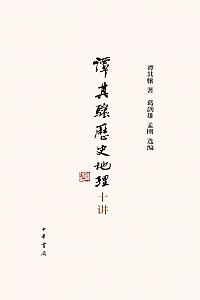 谭其骧 著 葛剑雄 孟刚 选编
譚其驤歷史地理
十讲
中華書局